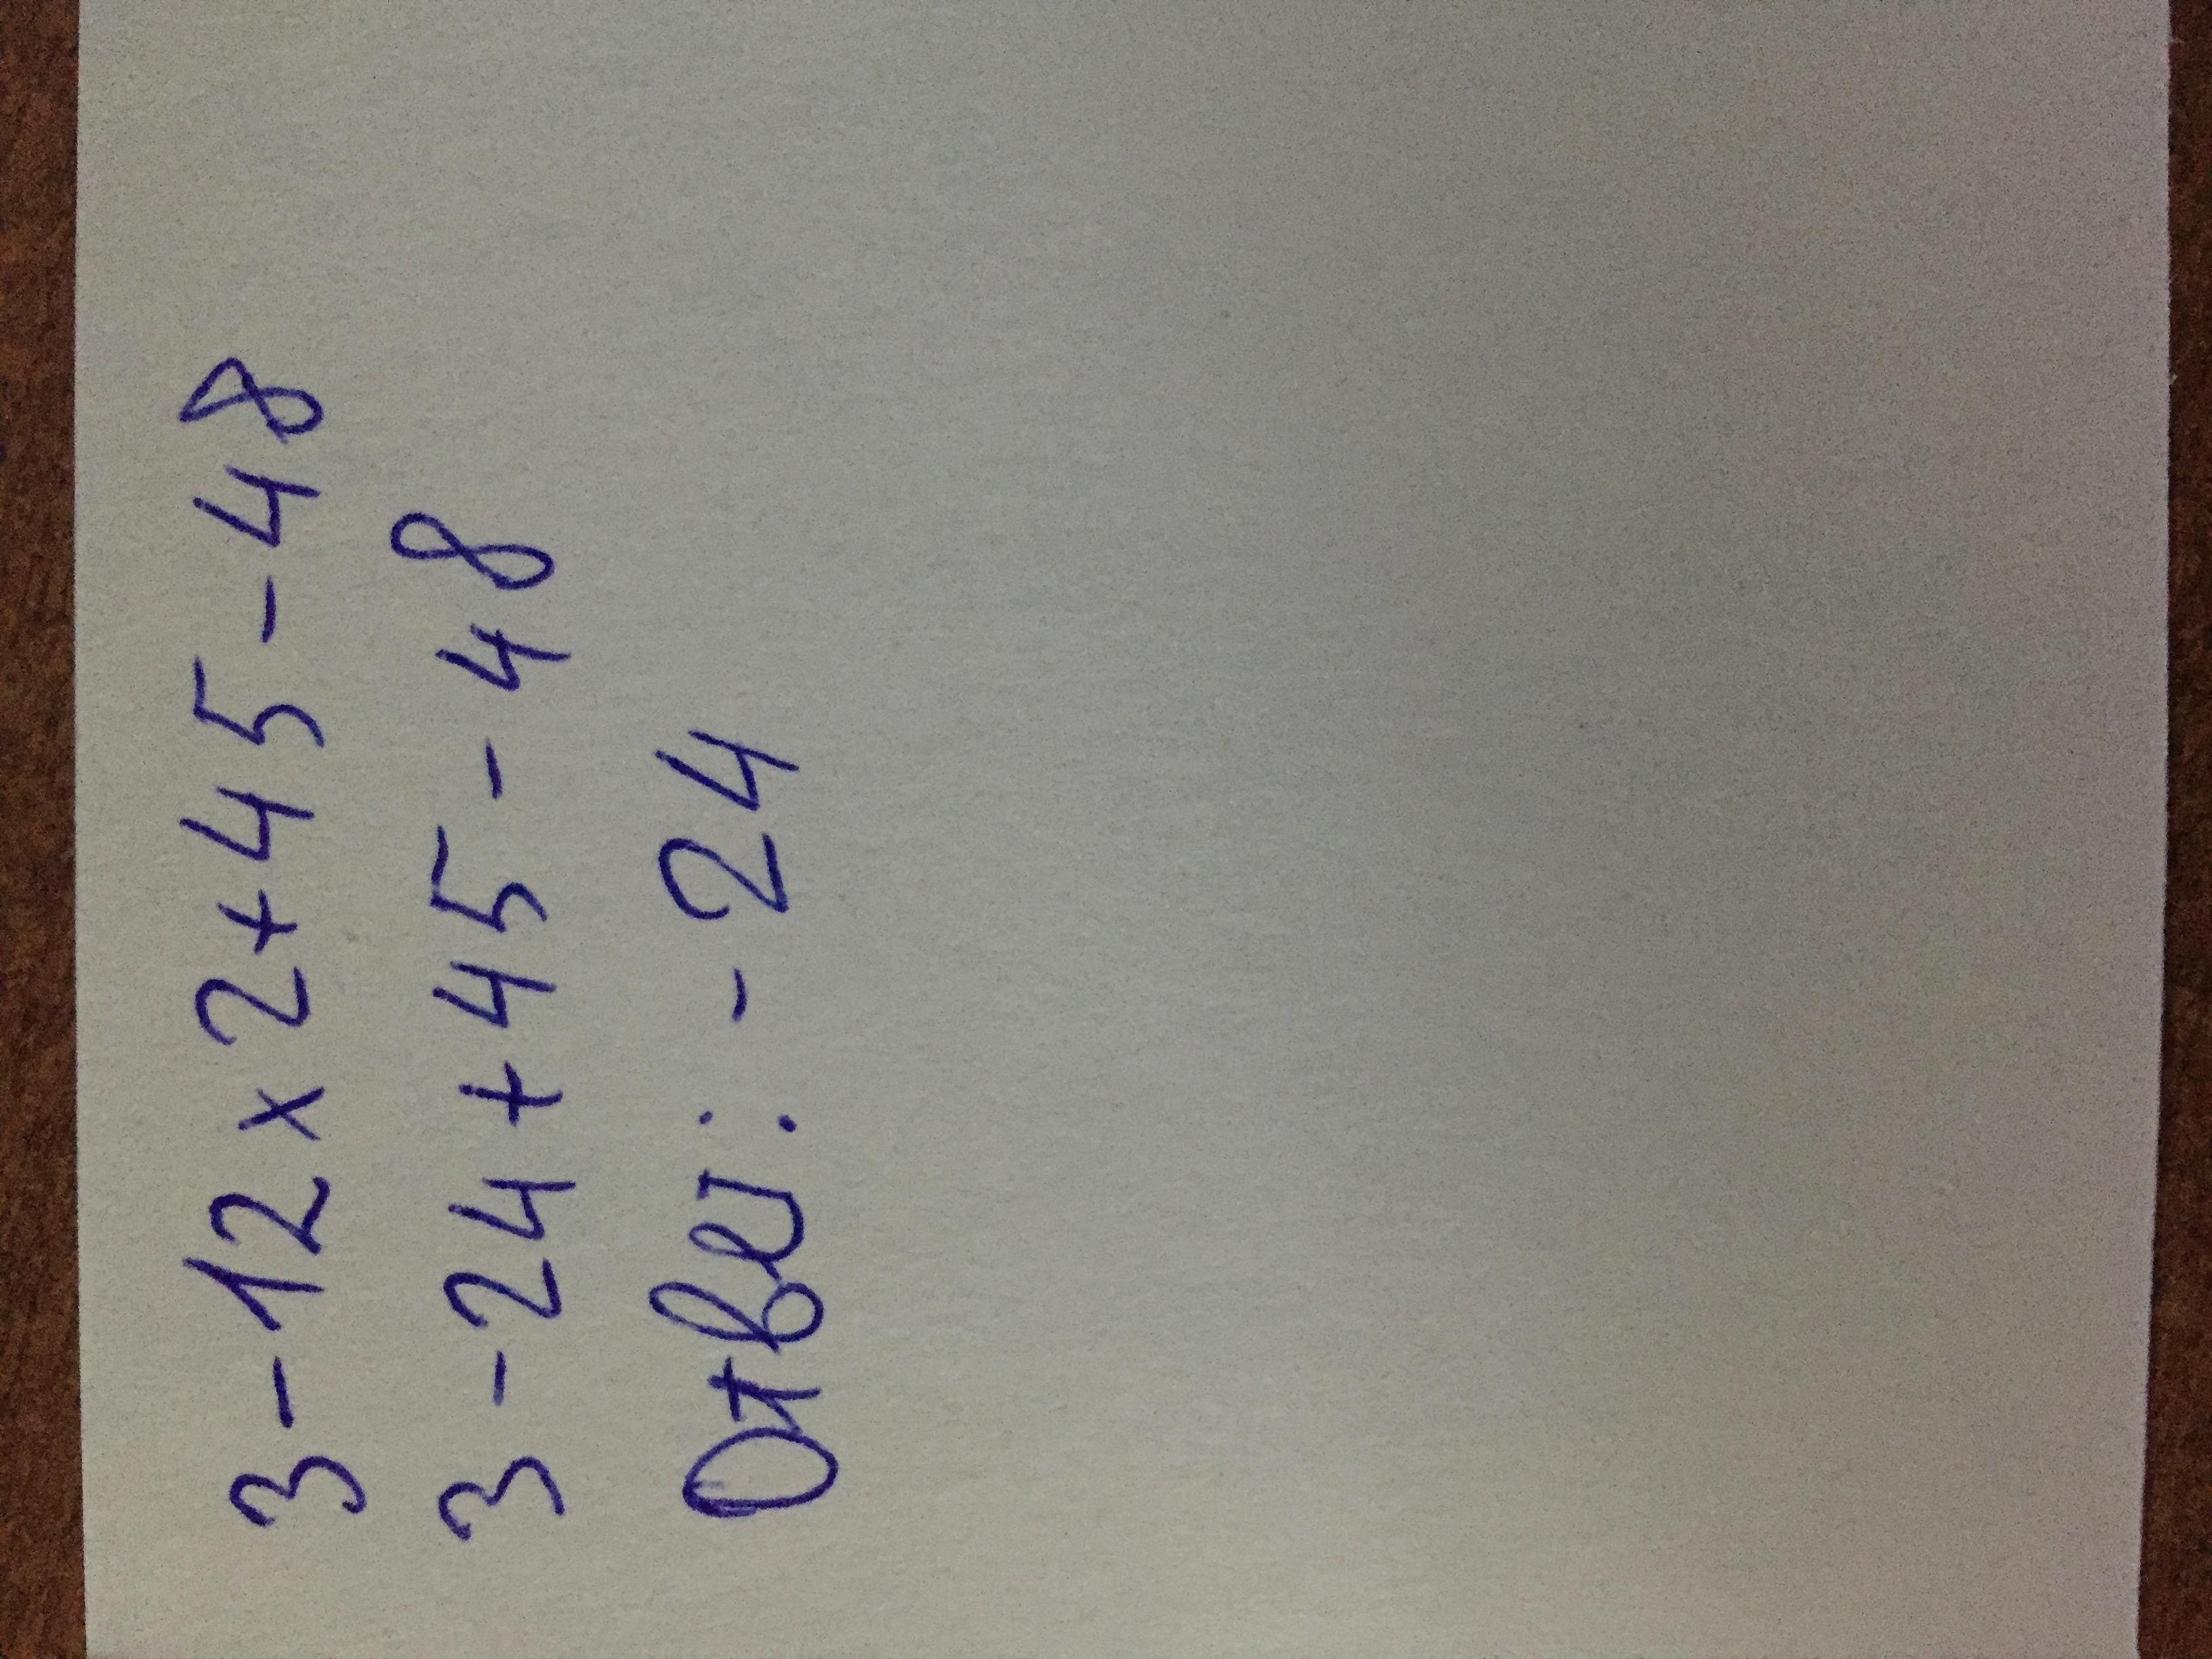 3 - 12 x 2 + 45 - 48
3 - 24 + 45 - 48
Ответ: - 24